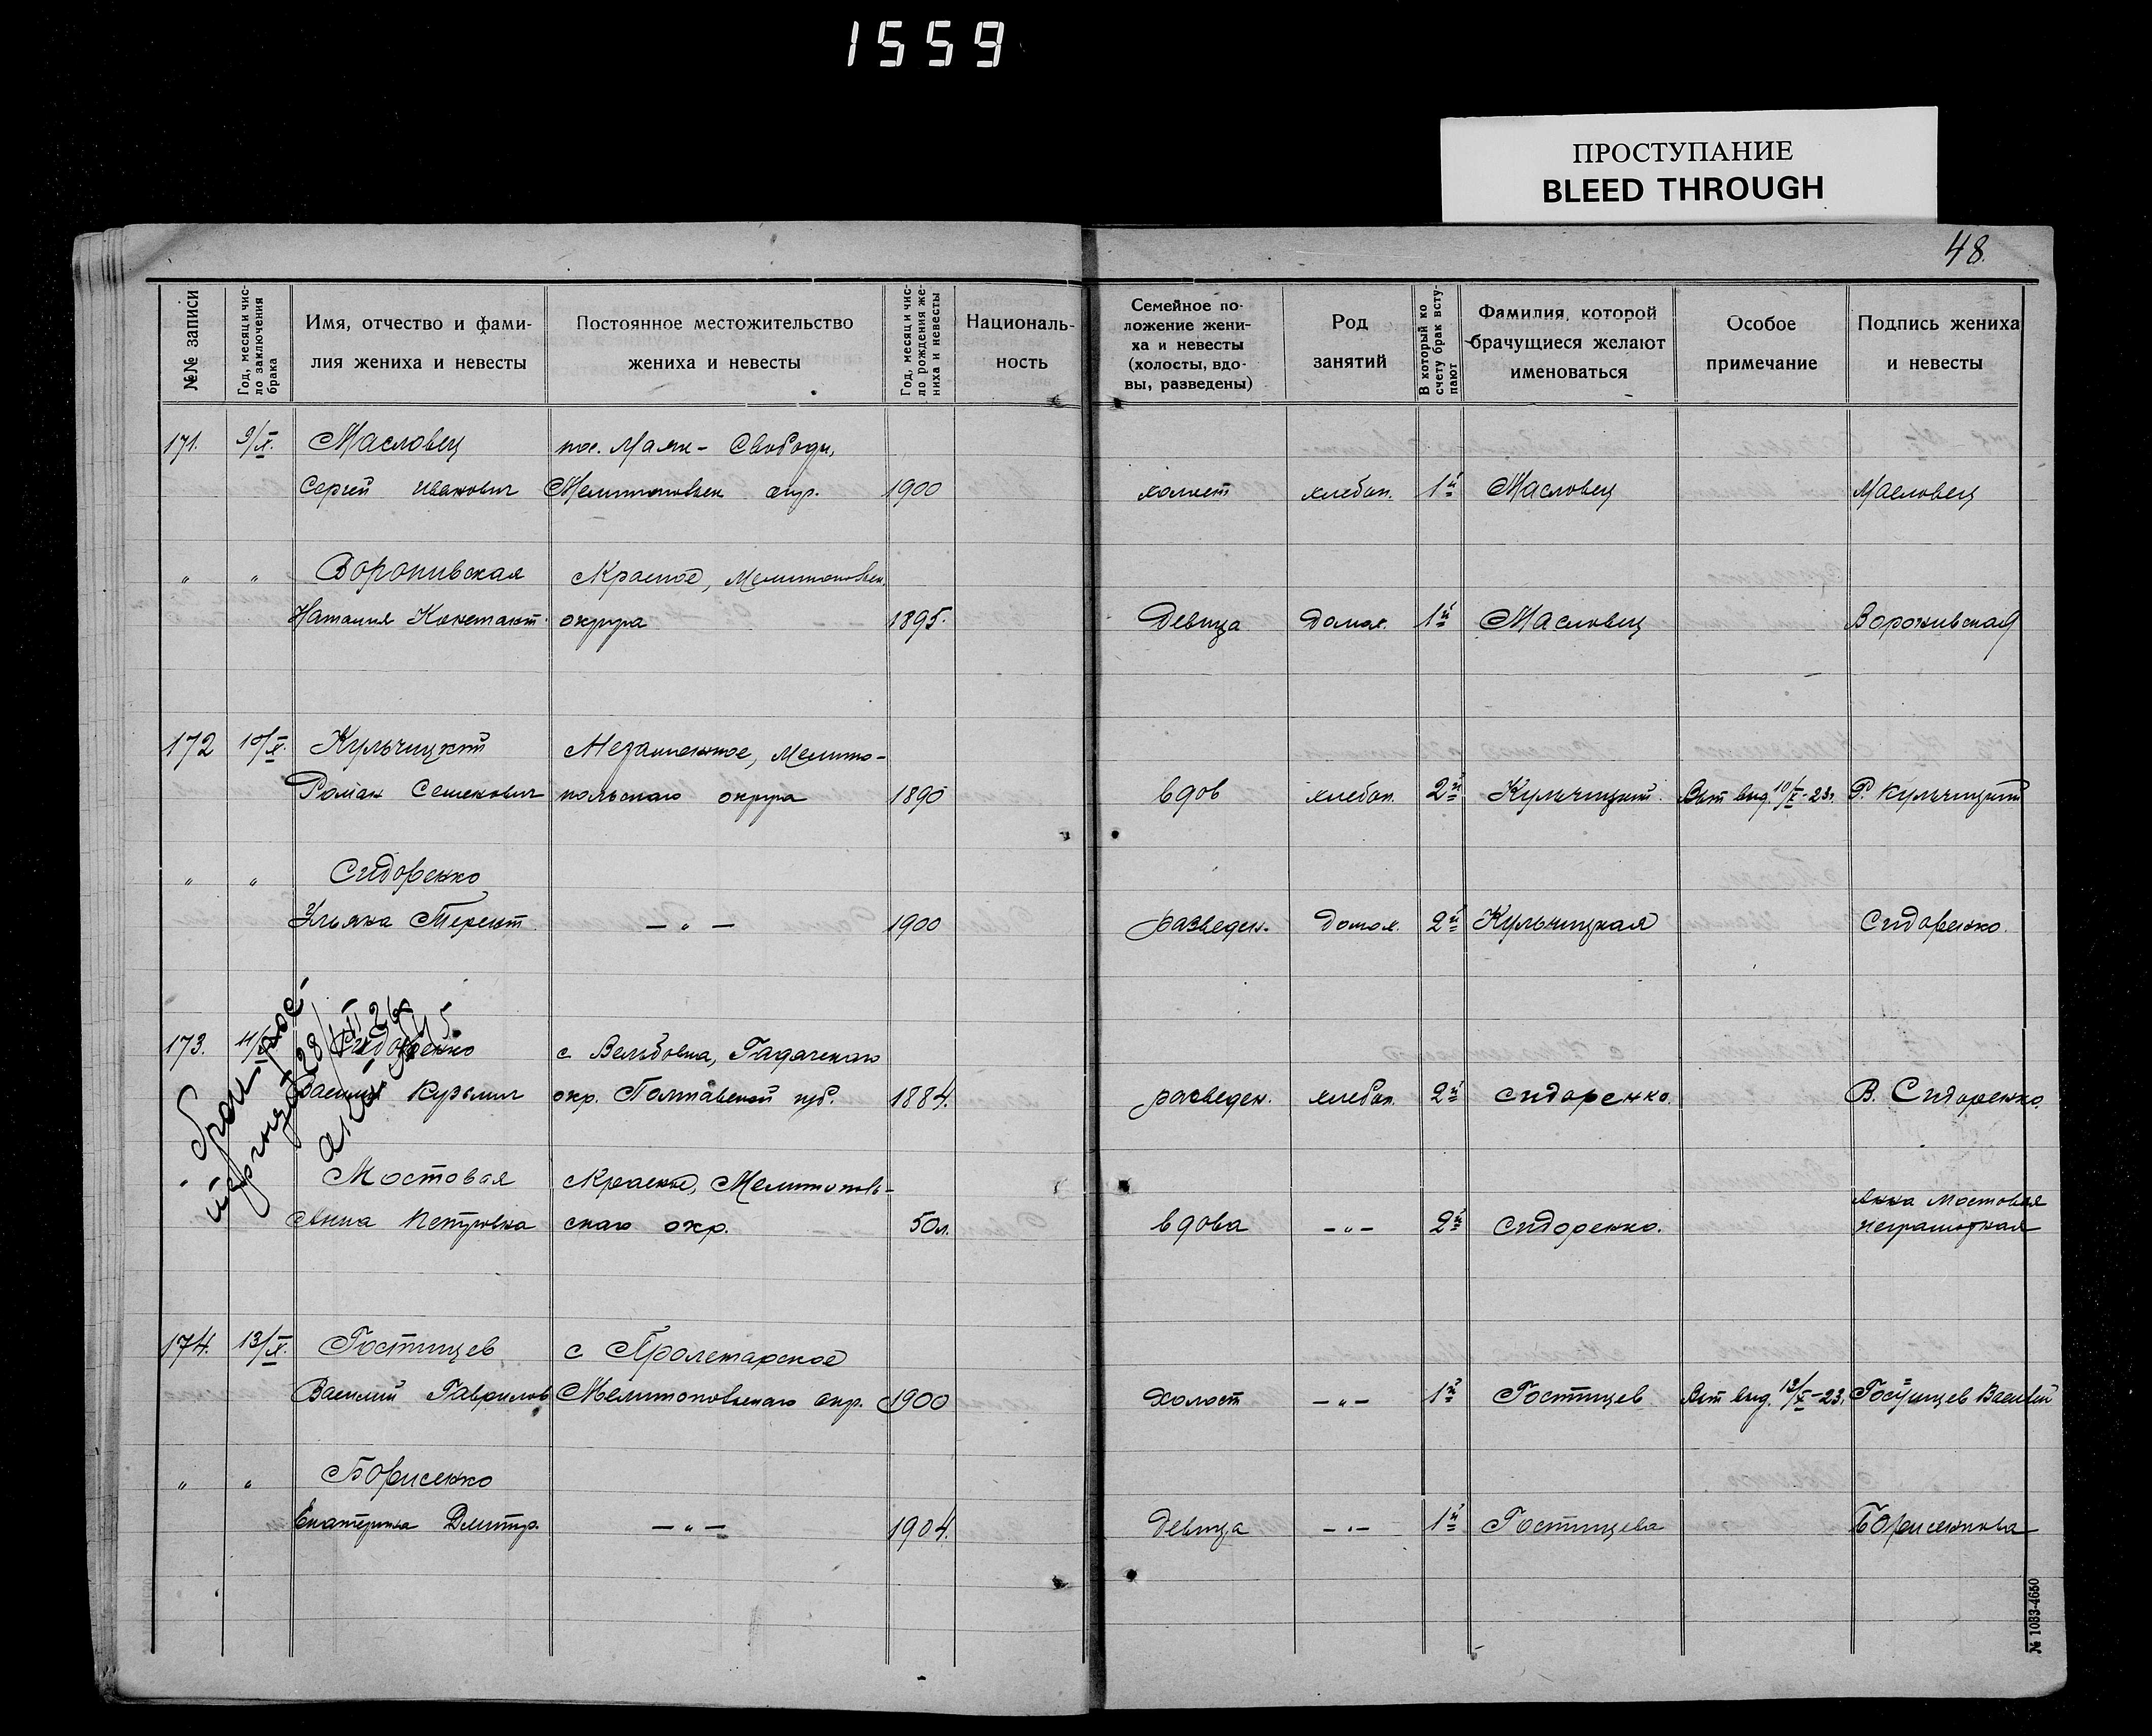 1559
ПРОСТУПАНИЕ
BLEED THROUGH
48.
№№ записи
Год, месяц и чис-
ло заключения
брака
Имя, отчество и фами-
лия жениха и невесты
Постоянное местожительство
жениха и невесты
Год, месяц и чис-
ло рождения же-
ниха и невесты
Националь-
ность
Семейное по-
ложение жени-
ха и невесты
(холосты, вдо-
вы, разведены)
Род
занятий
В который ко
счету брак всту-
пают
Фамилия, которой
брачущиеся желают
именоваться
Особое
примечание
Подпись жениха
и невесты
171. 9/X. Масловец пос. Маяк - Свободы,
Сергей Иванович Мелитопольск окр. 1900 холост хлебоп. 1й Масловец Масловец
" " Воронивская Красное, Мелитопольск.
Наталия Констант. округа 1895. Девица домох. 1й Масловец Воронивская
172 10/X. Кульчицкий Незаможное, Мелито-
Роман Семенович польского округа 1890 вдов хлебоп. 2й Кульчицкий. Вып выд. 10/X-23г. Р. Кульчицкий
" " Сидоренко
Ульяна Терент. — " — 1900 разведен. домох. 2й Кульчицкая Сидоренко.
173. 11/X Сидоренко с Вельбовка, Гадячского
Василий Кузьмич окр. Полтавской губ. 1884. разведен. хлебоп. 2й Сидоренко. В. Сидоренко.
брак рас-
Мостовая Красное, Мелитополь-
Анна Петровна ского окр. 50л. вдова — " — 2й Сидоренко. Анна Мостовая
неграмотная
174. 13/X. Гостищев с Пролетарское
Василий Гаврилов Мелитопольского окр. 1900 Холост — " — 1й Гостищев Вып выд. 13/X-23. Гостищев Василий
" " Борисенко
Екатерина Дмитр. — " — 1904. девица — " — 1й Гостищева Борисенкова
№ 1033-4650